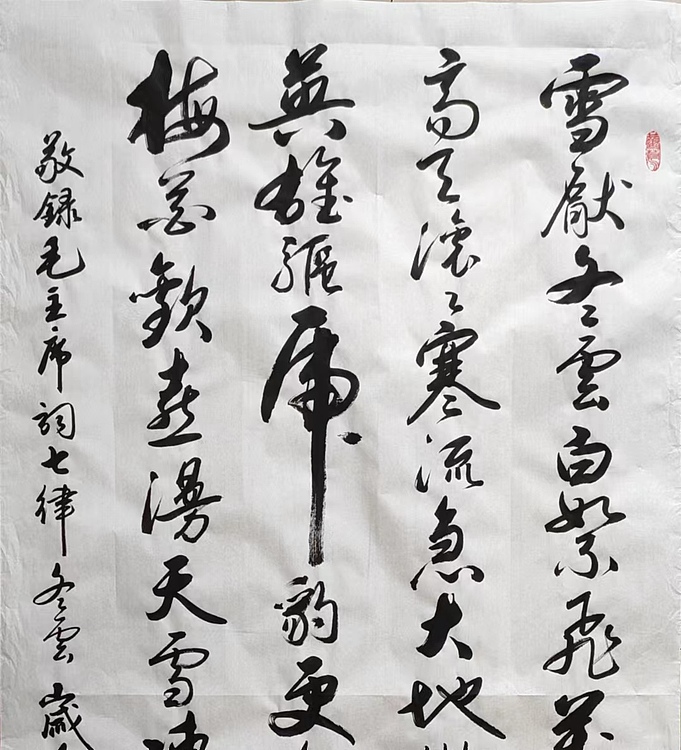 雪厭冬雲白絮飛萬
高天滾〻寒流急大地
英雄驅虎豹更
梅花歡喜漫天雪凍
敬錄毛主席詞七律冬雲歲